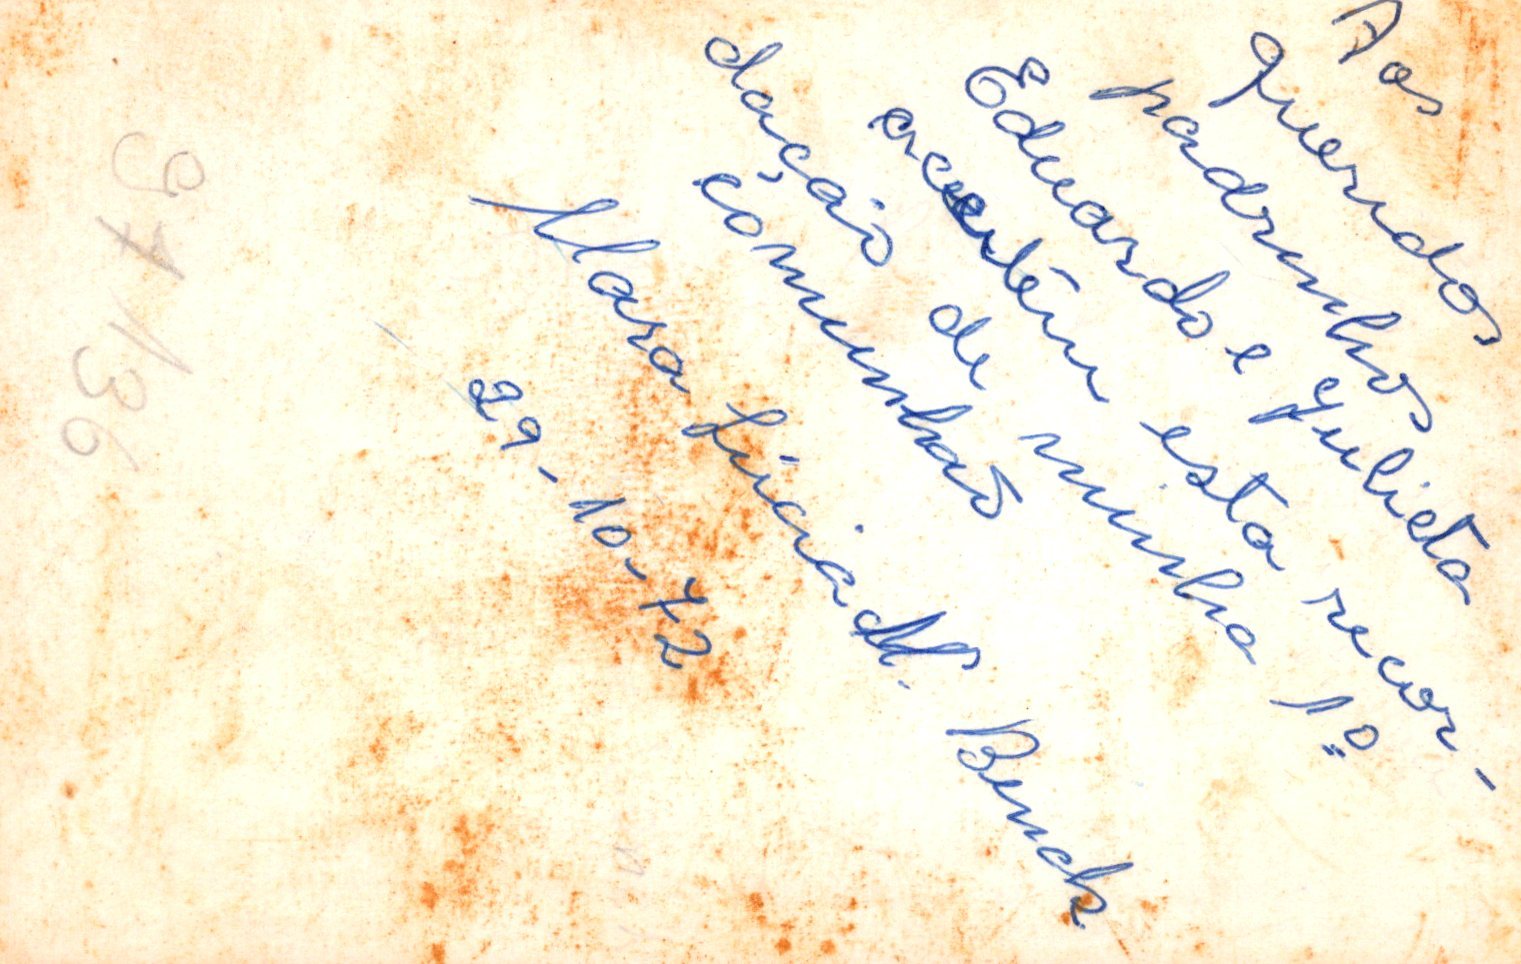 Aos
queridos
padrinhos
Eduardo e Julieta
aceitem esta recor-
dação de minha 1º
comunhaõ
Mara Lúcia M. Benck
29-10-72
97/36